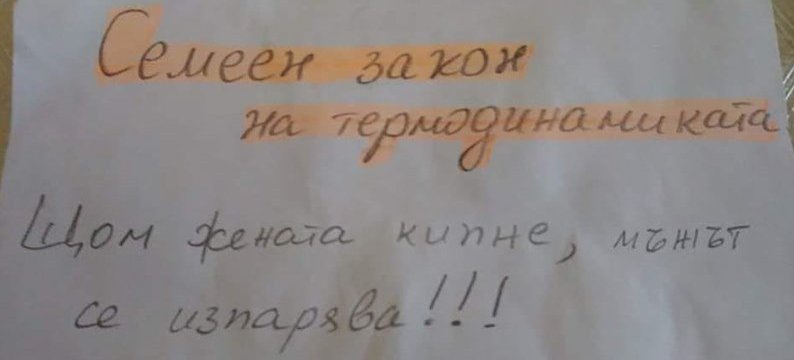 Семеен закон
на термодинамиката
Щом жената кипне, мъжът
се изпарява!!!